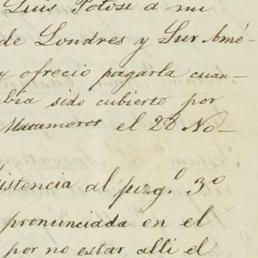 Luis Potosi a mi
de Londres y Sur Amé-
y ofrecio pagarla cuan-
bia sido cubierto por
Matamoros el 28 No-
istencia al juzg.º 3.º
pronunciada en el
por no estar alli el